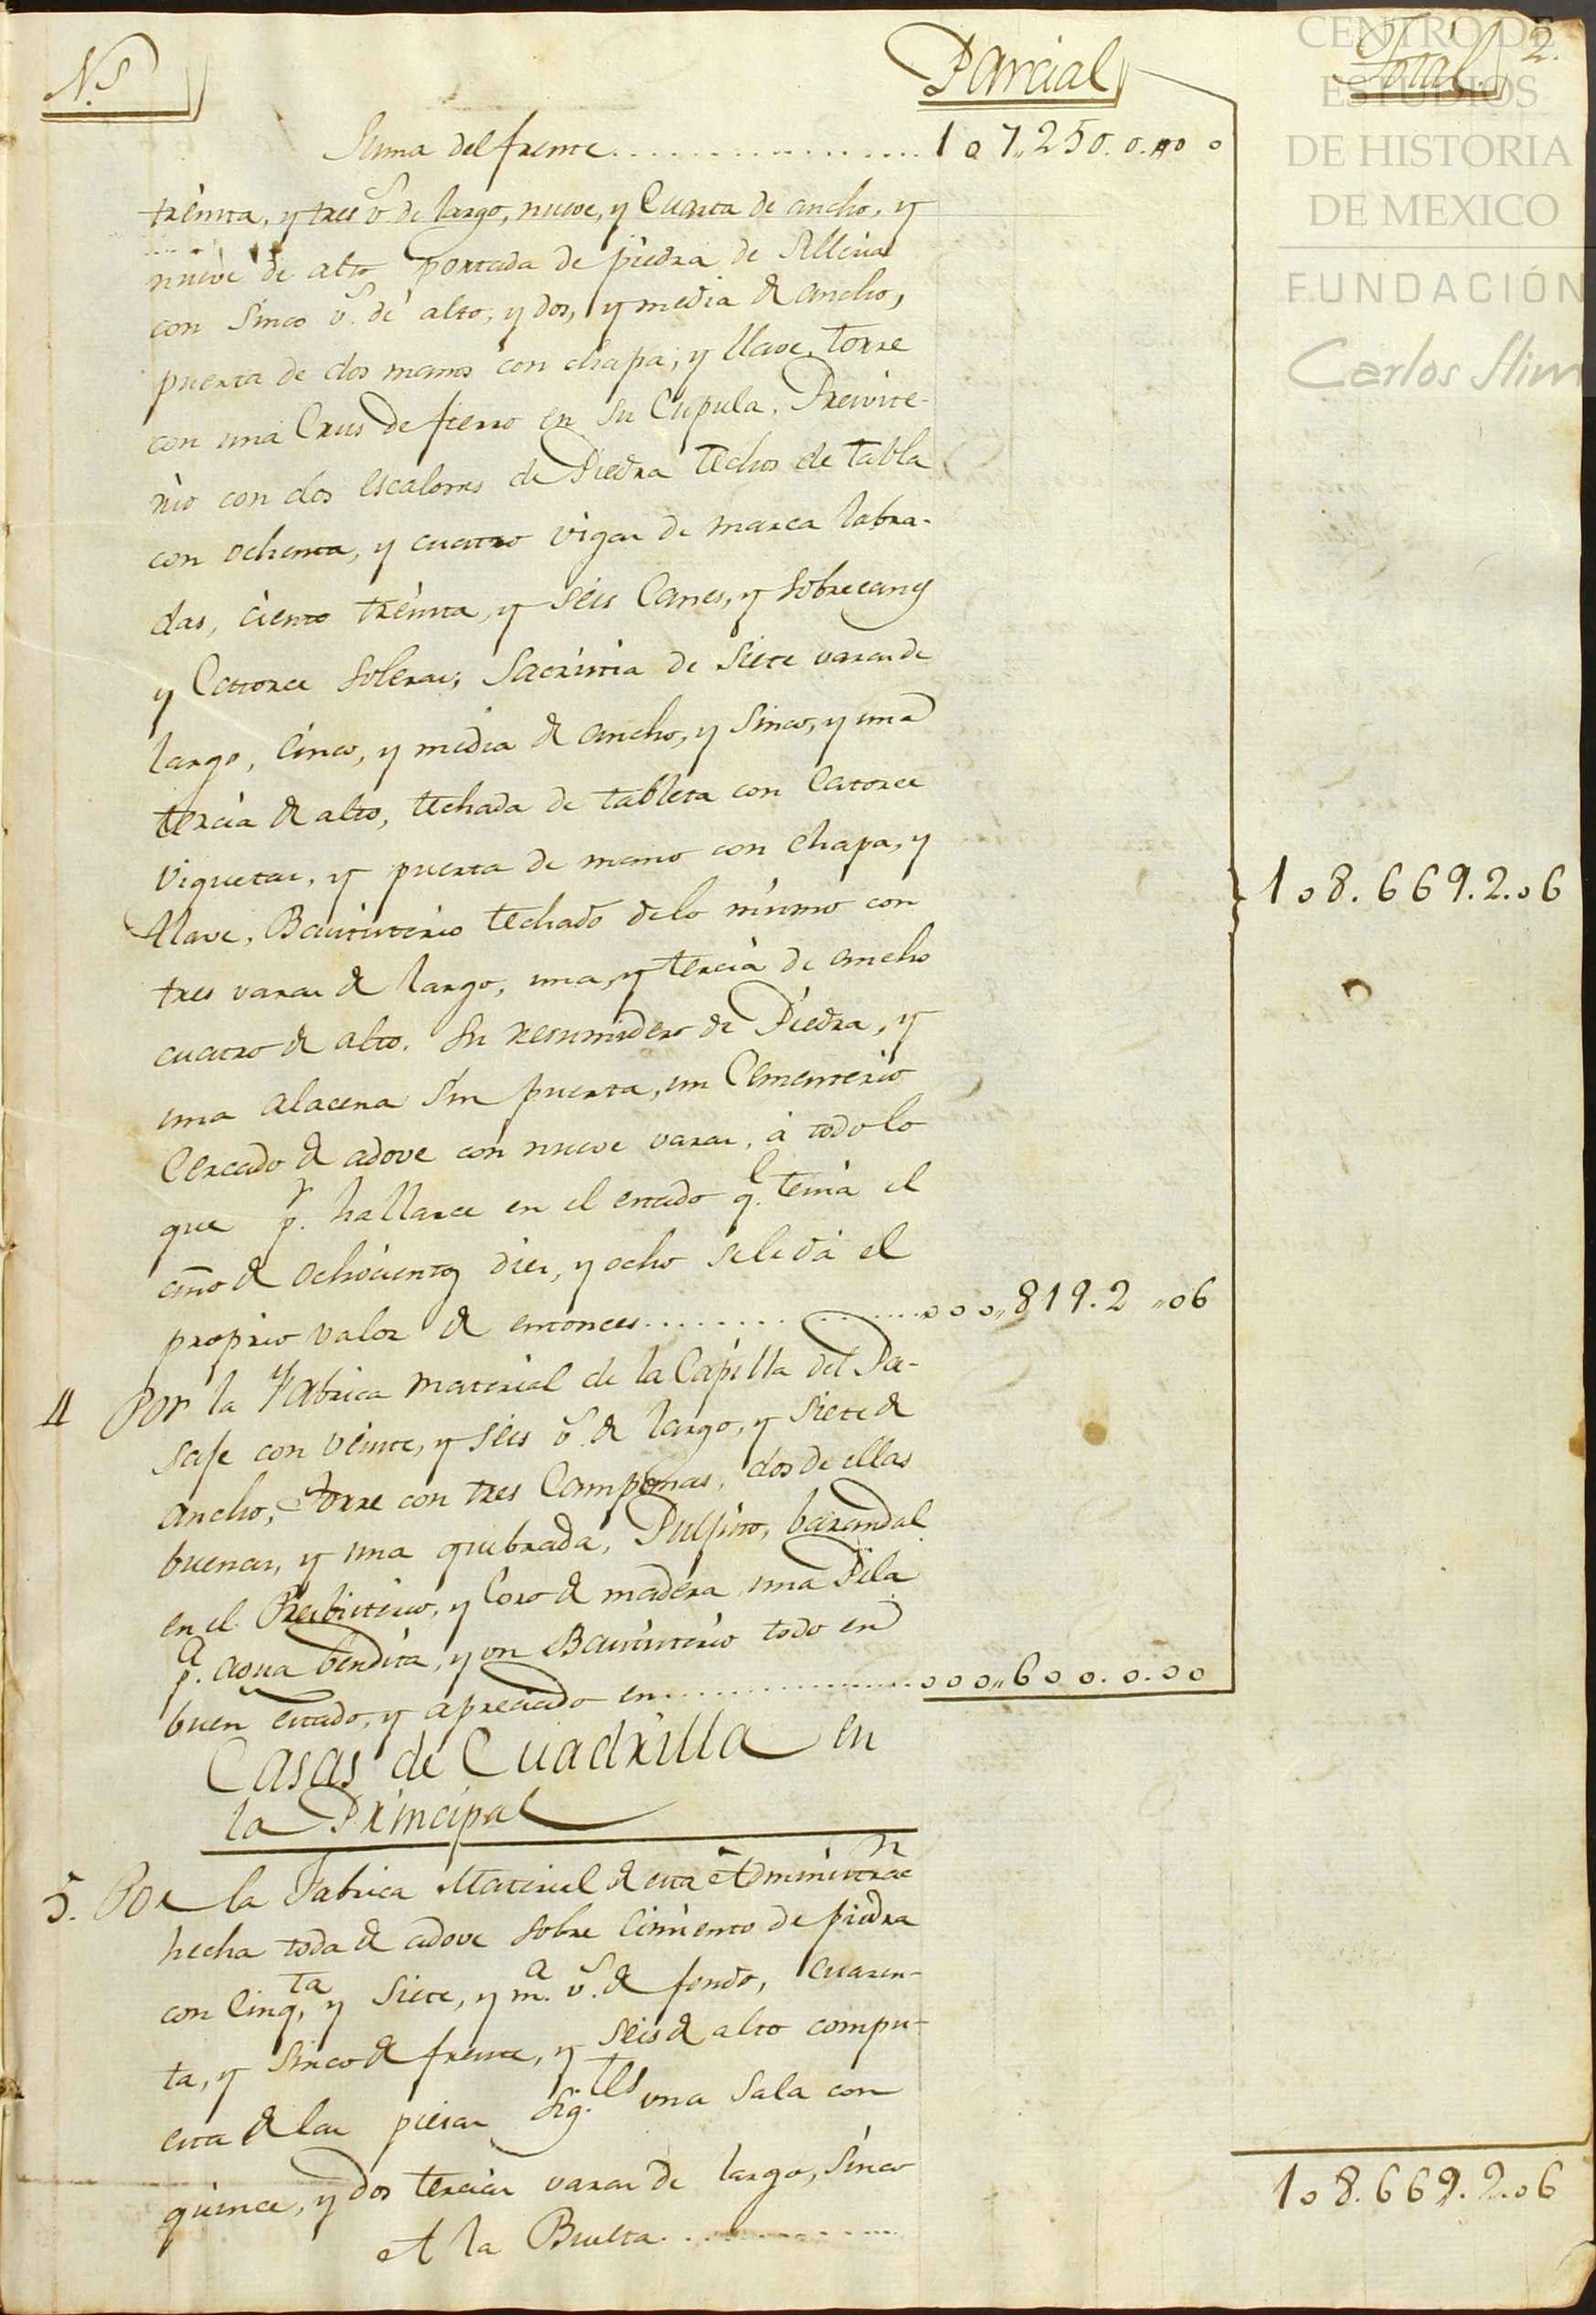 N.s
Parcial
Total
2.
CENTRO DE
ESTUDIOS
DE HISTORIA
DE MEXICO
FUNDACIÓN
Carlos Slim
Suma del frente . . . . . . . . 107,,250.0.00
treinta, y tres v.s de largo, nueve, y Cuarta de ancho, y
nueve de alto portada de piedra de Silleria
con Sinco v.s de alto, y dos, y media de ancho,
puerta de dos manos con chapa, y llave, torre
con una Crus de fierro en su Cupula, Preivite-
rio con dos escalones de Piedra techos de tabla
con ochenta, y cuatro vigas de marca labra-
das, ciento treinta, y seis Canes, y Sobrecanes
y Catorce Soleras, Sacristia de Siete varas de
largo, Cinco, y media de ancho, y Sinco, y una
tercia de alto, techada de tableta con Catorce
Viguetas, y puerta de mano con chapa, y
llave, Bautisterio techado delo mismo con
tres varas de largo, una, y tercia de ancho
cuatro de alto. Su resumidero de Piedra, y
una alacena Sin puerta, un Cementerio
Cercado de adove con nueve varas, á todo lo
que p.r hallarce en el estado q.e tenia el
año de ochocientos diez, y ocho se le dá el
proprio valor de entonces . . . . . . . . 000,,819.2,,06
108.669.2.06
4 Por la Fabrica material de la Capilla del Pa-
saje con veinte, y seis v.s de largo, y Siete de
ancho, Torre con tres Campanas, dos de ellas
buenas, y una quebrada, Pulpito, barandal
en el Presbiterio, y Coro de madera una Pila
p.a agua bendita, y un Bautisterio todo en
buen estado, y apreciado en . . . . . . . . 000,,600.0.00
Casas de Cuadrilla en
la Principal
5. Por la Fabrica Material de esta Administrac.n
hecha toda de adove sobre Cimiento de piedra
con Cinq.ta y Siete, y m.a v.s de fondo, Cuaren-
ta, y Sinco de frente, y Seis de alto compu-
esta de las piesas Sig.tes una Sala con
quince, y dos tercias varas de largo, Sinco
A la Buelta . . . . . . . . 108.669.2.06